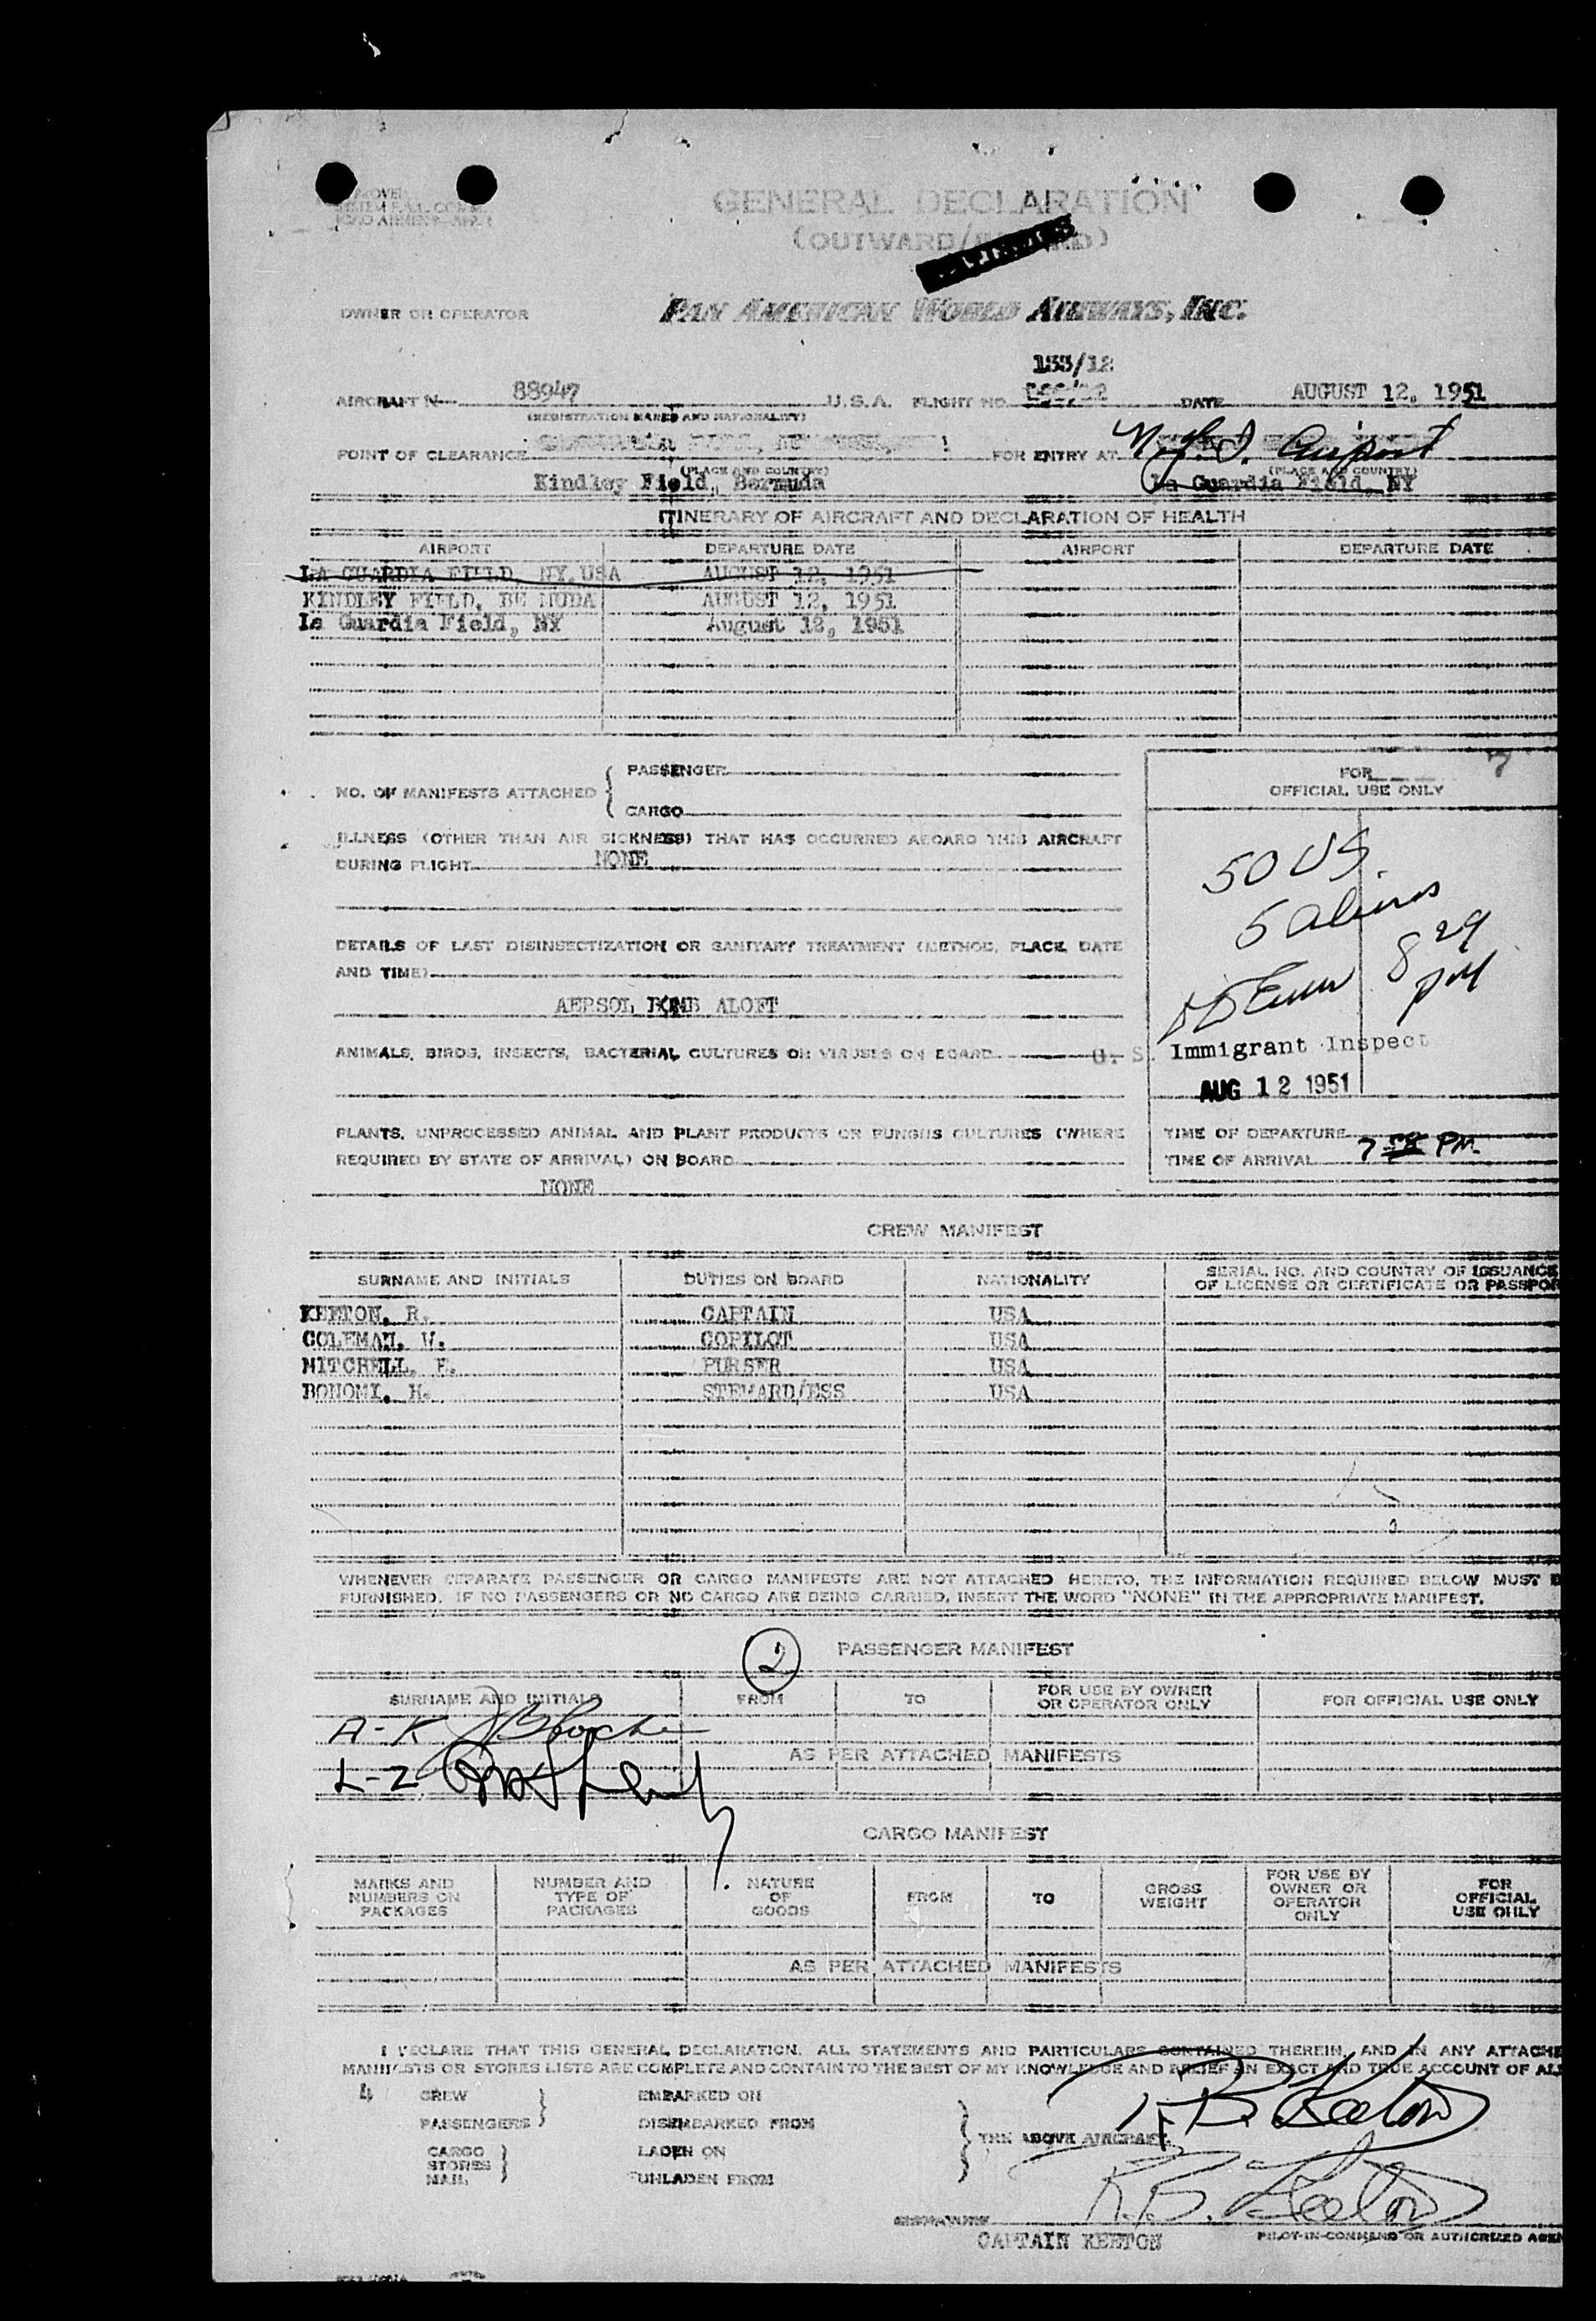 GENERAL DECLARATION
(OUTWARD/
OWNER OR OPERATOR PAN AMERICAN WORLD AIRWAYS, INC.
133/12
AIRCRAFT N 88947 U.S.A. FLIGHT NO. DATE AUGUST 12, 1951
(REGISTRATION MARKS AND NATIONALITY)
POINT OF CLEARANCE FOR ENTRY AT Airport
(PLACE AND COUNTRY) (PLACE AND COUNTRY)
Kindley Field, Bermuda La Guardia Field, NY
ITINERARY OF AIRCRAFT AND DECLARATION OF HEALTH
AIRPORT DEPARTURE DATE AIRPORT DEPARTURE DATE
LA GUARDIA FIELD, NY, USA AUGUST 12, 1951
KINDLEY FIELD, BE MUDA AUGUST 12, 1951
La Guardia Field, NY August 12, 1951
FOR
OFFICIAL USE ONLY
NO. OF MANIFESTS ATTACHED { PASSENGER
CARGO
ILLNESS (OTHER THAN AIR SICKNESS) THAT HAS OCCURRED ABOARD THIS AIRCRAFT
DURING FLIGHT NONE
50 US
5 aliens
8 29 PM
DETAILS OF LAST DISINSECTIZATION OR SANITARY TREATMENT (METHOD, PLACE, DATE
AND TIME)
AERSOL BOMB ALOFT
ANIMALS, BIRDS, INSECTS, BACTERIAL CULTURES OR VIRUSES ON BOARD
U. S. Immigrant Inspect
AUG 12 1951
PLANTS, UNPROCESSED ANIMAL AND PLANT PRODUCTS OR FUNGUS CULTURES (WHERE
REQUIRED BY STATE OF ARRIVAL) ON BOARD
NONE
TIME OF DEPARTURE
TIME OF ARRIVAL 7 58 PM
CREW MANIFEST
SURNAME AND INITIALS DUTIES ON BOARD NATIONALITY SERIAL NO. AND COUNTRY OF ISSUANCE
OF LICENSE OR CERTIFICATE OR PASSPOR
KEETON, R. CAPTAIN USA
COLEMAN, W. COPILOT USA
MITCHELL, F. PURSER USA
BONOMI, H. STEWARD/ESS USA
WHENEVER SEPARATE PASSENGER OR CARGO MANIFESTS ARE NOT ATTACHED HERETO, THE INFORMATION REQUIRED BELOW MUST B
FURNISHED. IF NO PASSENGERS OR NO CARGO ARE BEING CARRIED, INSERT THE WORD "NONE" IN THE APPROPRIATE MANIFEST.
2 PASSENGER MANIFEST
SURNAME AND INITIALS FROM TO FOR USE BY OWNER
OR OPERATOR ONLY FOR OFFICIAL USE ONLY
A-K
AS PER ATTACHED MANIFESTS
L-Z
CARGO MANIFEST
MARKS AND
NUMBERS ON
PACKAGES
NUMBER AND
TYPE OF
PACKAGES
NATURE
OF
GOODS
FROM TO
GROSS
WEIGHT
FOR USE BY
OWNER OR
OPERATOR
ONLY
FOR
OFFICIAL
USE ONLY
AS PER ATTACHED MANIFESTS
I DECLARE THAT THIS GENERAL DECLARATION, ALL STATEMENTS AND PARTICULARS CONTAINED THEREIN, AND IN ANY ATTACHE
MANIFESTS OR STORES LISTS ARE COMPLETE AND CONTAIN TO THE BEST OF MY KNOWLEDGE AND BELIEF AN EXACT AND TRUE ACCOUNT OF ALL
4 CREW EMBARKED ON
PASSENGERS DISEMBARKED FROM
THE ABOVE AIRCRAFT.
CARGO LADEN ON
STORES
MAIL UNLADEN FROM
R.B. Keeton
R.B. Keeton
CAPTAIN KEETON PILOT-IN-COMMAND OR AUTHORIZED AGEN